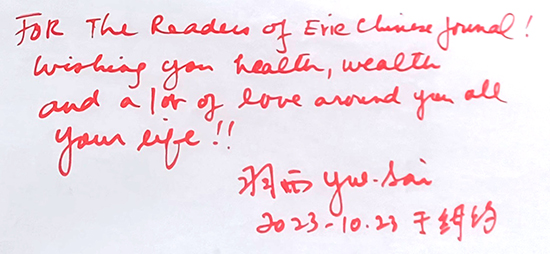 FOR The Readers of Erie Chinese Journal!
Wishing you health, wealth
and a lot of love around you all
your life!!
羽西 Yue-Sai
2023-10.23 于纽约